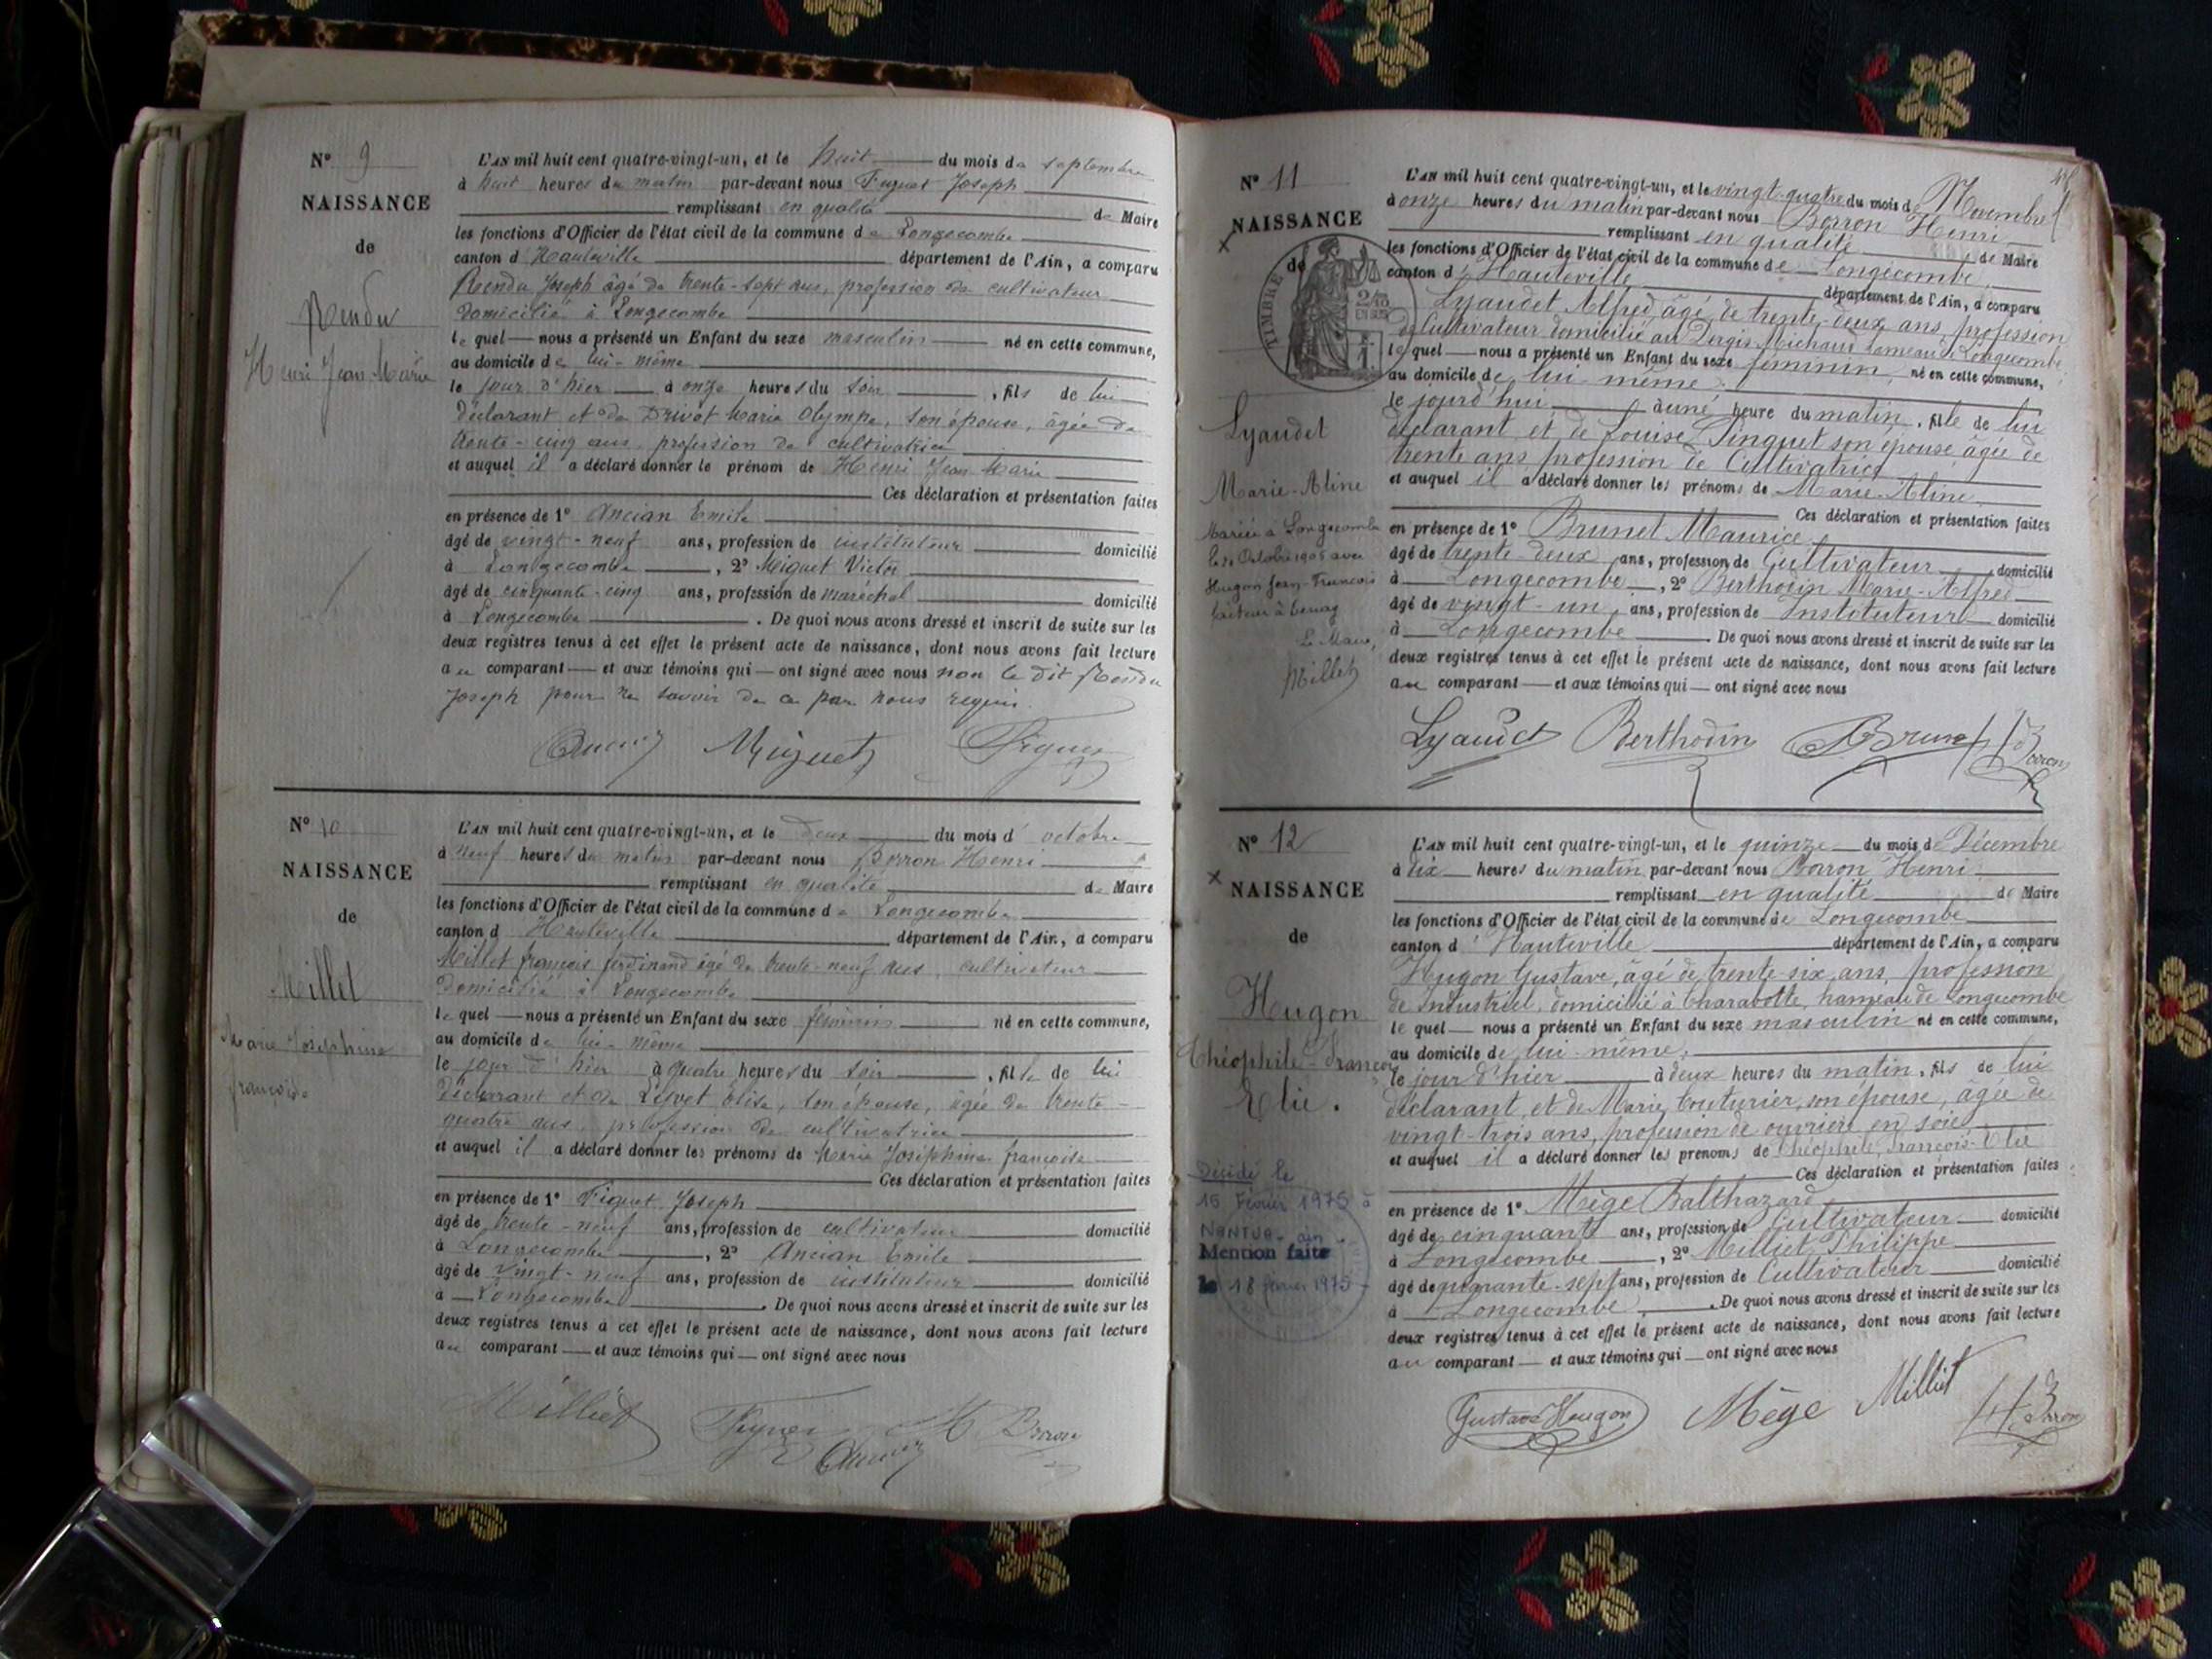 N° 9
NAISSANCE
de
Rendu
Henri Jean Marie
L'AN mil huit cent quatre-vingt-un, et le huit du mois de septembre
à huit heures du matin par-devant nous Figuet Joseph
remplissant en qualité de Maire
les fonctions d'Officier de l'état civil de la commune de Longecombe
canton d'Hauteville département de l'Ain, a comparu
Rendu Joseph âgé de trente-sept ans, profession de cultivateur
domicilié à Longecombe
lequel nous a présenté un Enfant du sexe masculin né en cette commune,
au domicile de lui-même
le jour d'hier à onze heures du soir, fils de lui
déclarant et de Drivot Marie Olympe, son épouse, âgée de
trente-cinq ans, profession de cultivatrice
et auquel il a déclaré donner le prénom de Henri Jean Marie
Ces déclaration et présentation faites
en présence de 1° Ancian Emile
âgé de vingt-neuf ans, profession de instituteur domicilié
à Longecombe, 2° Miguet Victor
âgé de cinquante-cinq ans, profession de maréchal domicilié
à Longecombe. De quoi nous avons dressé et inscrit de suite sur les
deux registres tenus à cet effet le présent acte de naissance, dont nous avons fait lecture
au comparant et aux témoins qui ont signé avec nous non le dit Rendu
Joseph pour ne savoir de ce par nous requis.
Miguet
N° 10
NAISSANCE
de
Millet
Marie Joséphine
françoise
L'AN mil huit cent quatre-vingt-un, et le deux du mois d'octobre
à neuf heures du matin par-devant nous Borron Henri
remplissant en qualité de Maire
les fonctions d'Officier de l'état civil de la commune de Longecombe
canton d Hauteville département de l'Ain, a comparu
Millet françois ferdinand âgé de trente-neuf ans, cultivateur
domicilié à Longecombe
lequel nous a présenté un Enfant du sexe féminin né en cette commune,
au domicile de lui-même
le jour d'hier à quatre heures du soir, fille de lui
déclarant et de Elise, son épouse, âgée de trente-
quatre ans, profession de cultivatrice
et auquel il a déclaré donner les prénoms de Marie Joséphine françoise
Ces déclaration et présentation faites
en présence de 1° Figuet Joseph
âgé de trente-neuf ans, profession de cultivateur domicilié
à Longecombe, 2° Ancian Emile
âgé de vingt-neuf ans, profession de instituteur domicilié
à Longecombe. De quoi nous avons dressé et inscrit de suite sur les
deux registres tenus à cet effet le présent acte de naissance, dont nous avons fait lecture
au comparant et aux témoins qui ont signé avec nous
Milliet
N° 11
NAISSANCE
de
TIMBRE
Lyaudet
Marie-Aline
Mariée à Longecombe
Octobre 1905 avec
Hugon Jean-François
facteur à
Le Maire,
Millet
L'AN mil huit cent quatre-vingt-un, et le vingt-quatre du mois de Novembre
à onze heures du matin par-devant nous Borron Henri
remplissant en qualité de Maire
les fonctions d'Officier de l'état civil de la commune de Longecombe
canton d'Hauteville département de l'Ain, a comparu
Lyaudet Alfred, âgé de trente-deux ans, profession
de Cultivateur domicilié au Michaud hameau de Longecombe
lequel nous a présenté un Enfant du sexe féminin, né en cette commune,
au domicile de lui-même,
le jourd'hui à une heure du matin, fille de lui
déclarant, et de Louise Pinguet son épouse âgée de
trente ans profession de Cultivatrice
et auquel il a déclaré donner les prénoms de Marie-Aline
Ces déclaration et présentation faites
en présence de 1° Brunet Maurice
âgé de trente-deux ans, profession de Cultivateur domicilié
à Longecombe, 2° Berthodin Marie-Alfred
âgé de vingt-un, ans, profession de Instituteur domicilié
à Longecombe. De quoi nous avons dressé et inscrit de suite sur les
deux registres tenus à cet effet le présent acte de naissance, dont nous avons fait lecture
au comparant et aux témoins qui ont signé avec nous
Lyaudet Berthodin Brunet HBorron
N° 12
NAISSANCE
de
Hugon
Théophile-François
Elie.
Décédé le
15 Février 1975 à
NANTUA - ain -
Mention faite
le 18 février 1975
L'AN mil huit cent quatre-vingt-un, et le quinze du mois de Décembre
à dix heures du matin par-devant nous Borron Henri
remplissant en qualité de Maire
les fonctions d'Officier de l'état civil de la commune de Longecombe
canton d'Hauteville département de l'Ain, a comparu
Hugon Gustave, âgé de trente-six ans, profession
de Industriel, domicilié à Charabotte, hameau de Longecombe
lequel nous a présenté un Enfant du sexe masculin né en cette commune,
au domicile de lui-même,
le jour d'hier à deux heures du matin, fils de lui
déclarant, et de Marie Couturier, son épouse, âgée de
vingt-trois ans, profession de ouvrière en soie
et auquel il a déclaré donner les prénoms de Théophile, François-Elie
Ces déclaration et présentation faites
en présence de 1° Mège Balthazard
âgé de cinquante ans, profession de Cultivateur domicilié
à Longecombe, 2° Milliet Philippe
âgé de quarante-sept ans, profession de Cultivateur domicilié
à Longecombe. De quoi nous avons dressé et inscrit de suite sur les
deux registres tenus à cet effet le présent acte de naissance, dont nous avons fait lecture
au comparant et aux témoins qui ont signé avec nous
Gustave Hugon Mège Milliet HBorron